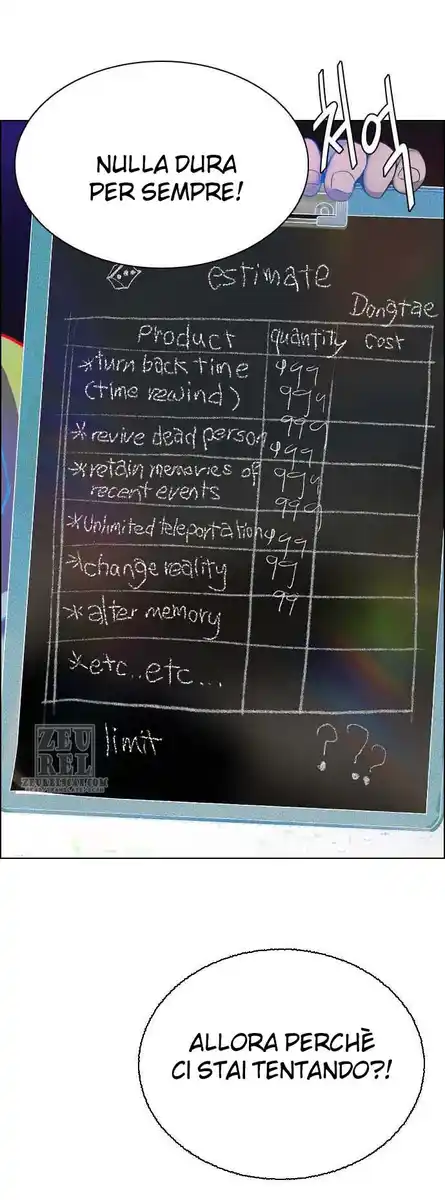 NULLA DURA
PER SEMPRE!
estimate
Dongtae
Product quantity cost
*turn back time 999
(time rewind) 999
999
*revive dead person 999
*retain memories of 999
recent events 999
*unlimited teleportation 999
*change reality 99
99
*alter memory
*etc..etc...
limit ???
ZEU
REL
ALLORA PERCHÈ
CI STAI TENTANDO?!